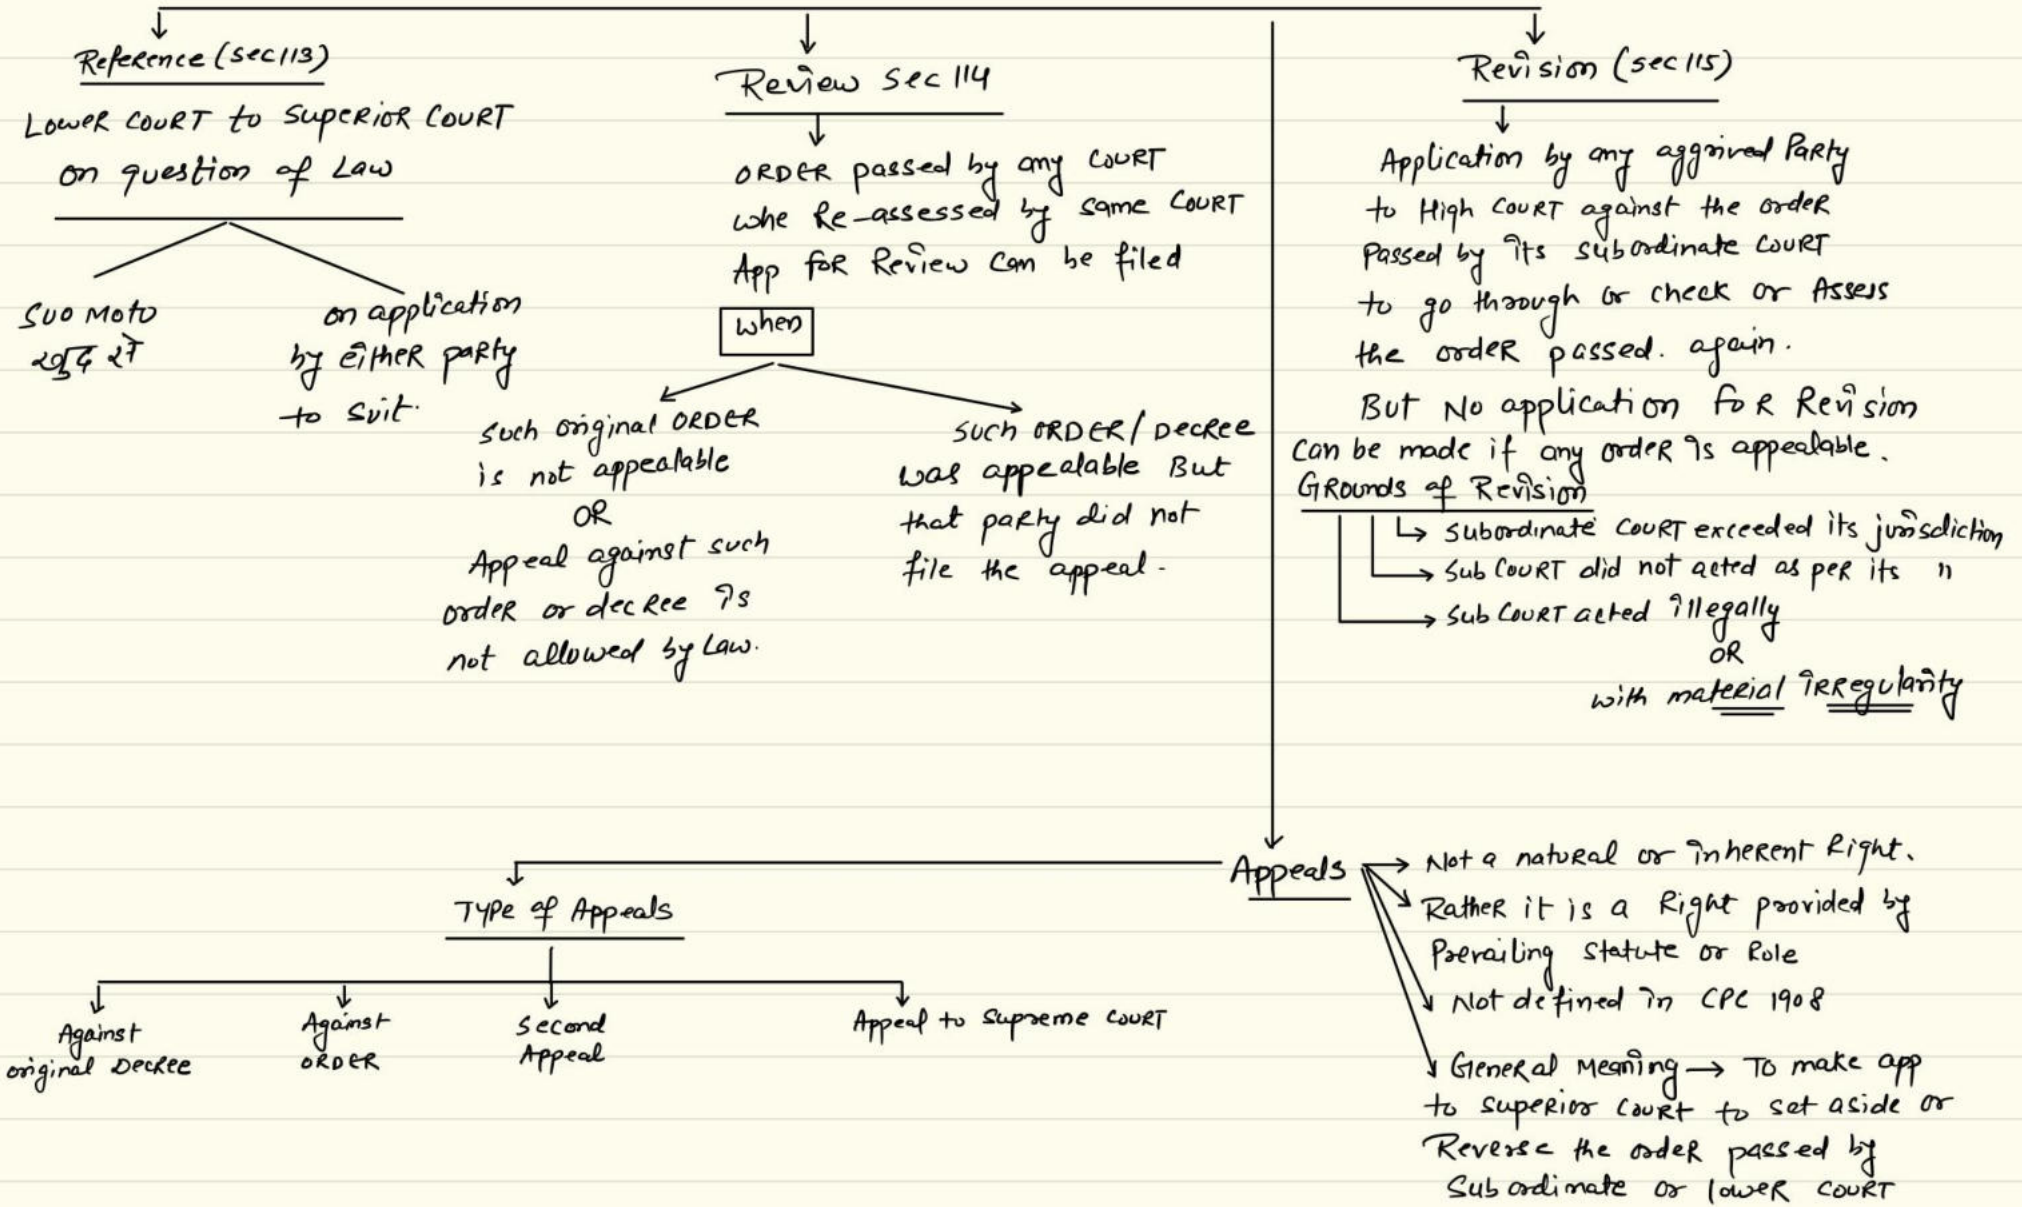 Reference (sec 113)
Lower court to superior court
on question of Law
Suo Moto
खुद से
on application
by either party
to suit.
Review sec 114
order passed by any court
whe Re-assessed by same court
App for Review can be filed
when
such original order
is not appealable
OR
Appeal against such
order or decree is
not allowed by Law.
such order / Decree
was appealable But
that party did not
file the appeal.
Revision (sec 115)
Application by any aggrived Party
to High court against the order
Passed by its subordinate court
to go through or check or Assess
the order passed. again.
But No application for Revision
can be made if any order is appealable.
Grounds of Revision
Subordinate court exceeded its jurisdiction
Sub court did not acted as per its "
Sub court acted illegally
OR
with material irregularity
Appeals
Not a natural or inherent Right.
Rather it is a Right provided by
Prevailing statute or Role
Not defined in CPC 1908
General Meaning → To make app
to superior court to set aside or
Reverse the order passed by
Subordimate or lower court
Type of Appeals
Against
original Decree
Against
order
Second
Appeal
Appeal to Supreme court